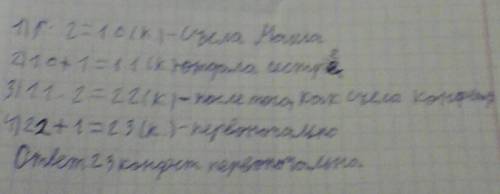 1) 5 · 2 = 10 (к) – съела Маша
2) 10 + 1 = 11 (к) отдала сестре
3) 11 · 2 = 22 (к) – после того, как съела конфету
4) 22 + 1 = 23 (к) – первоночально
Ответ 23 конфет первоночально.